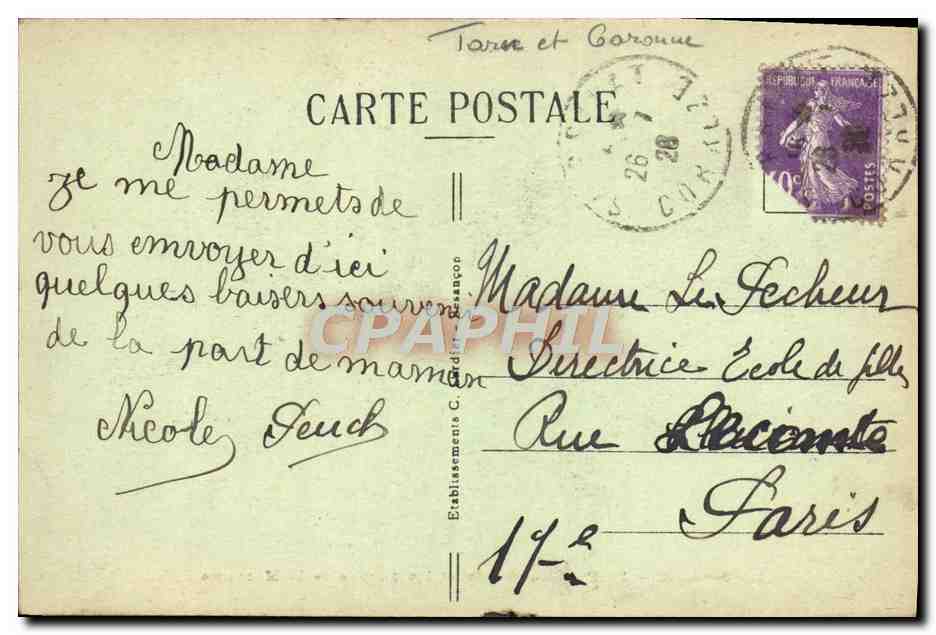 Tarn et Garonne
CARTE POSTALE
REPUBLIQUE FRANÇAISE
POSTES
26 7
28
CORREZE
Madame
je me permets de
vous envoyer d'ici
quelques baisers souvenir
de la part de maman
Nicole
Etablissements C. - Besançon
CPAPHIL
Madame Le Pecheur
Directrice Ecole de filles
Rue
Paris
17e